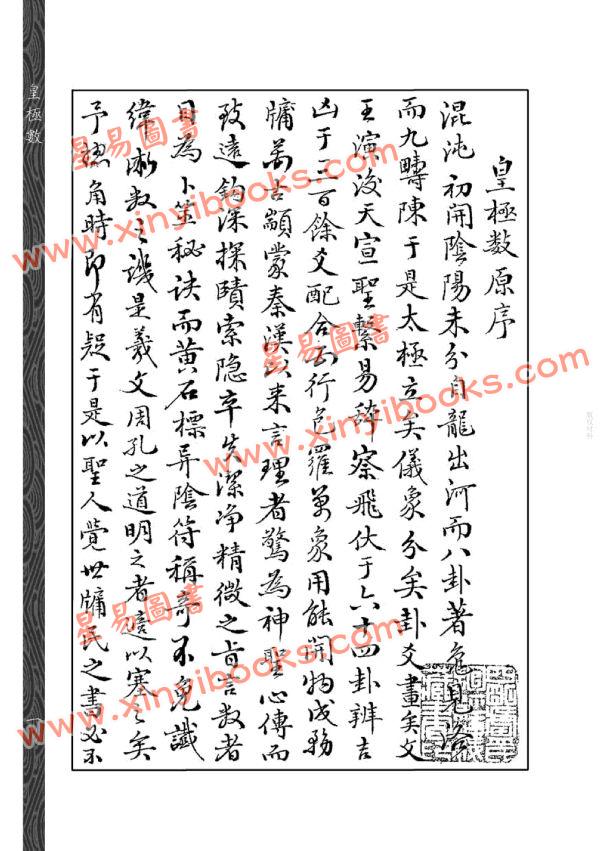 皇極數
皇極数原序
混沌初開陰陽未分自龍出河而八卦著龜見洛
而九疇陳于是太極立矣儀象分矣卦爻畫矣文
王演後天宣聖繫易辞察飛伏于六十四卦辨吉
凶于三百餘爻配合五行包羅萬象用能開物成務
牖萬古顓蒙秦漢以来言理者驚為神聖心傳而
致遠鈎深探賾索隐卒失潔净精微之旨言数者
目為卜筮秘诀而黄石標异陰符稱奇不免讖
緯術数之譏是羲文周孔之道明之者適以塞之矣
予總角時即有疑于是以聖人覺世牖民之書必不
星易圖書
www.xinyibooks.com
星易圖書
www.xinyibooks.com
星易圖書
www.xinyibooks.com
版权材料